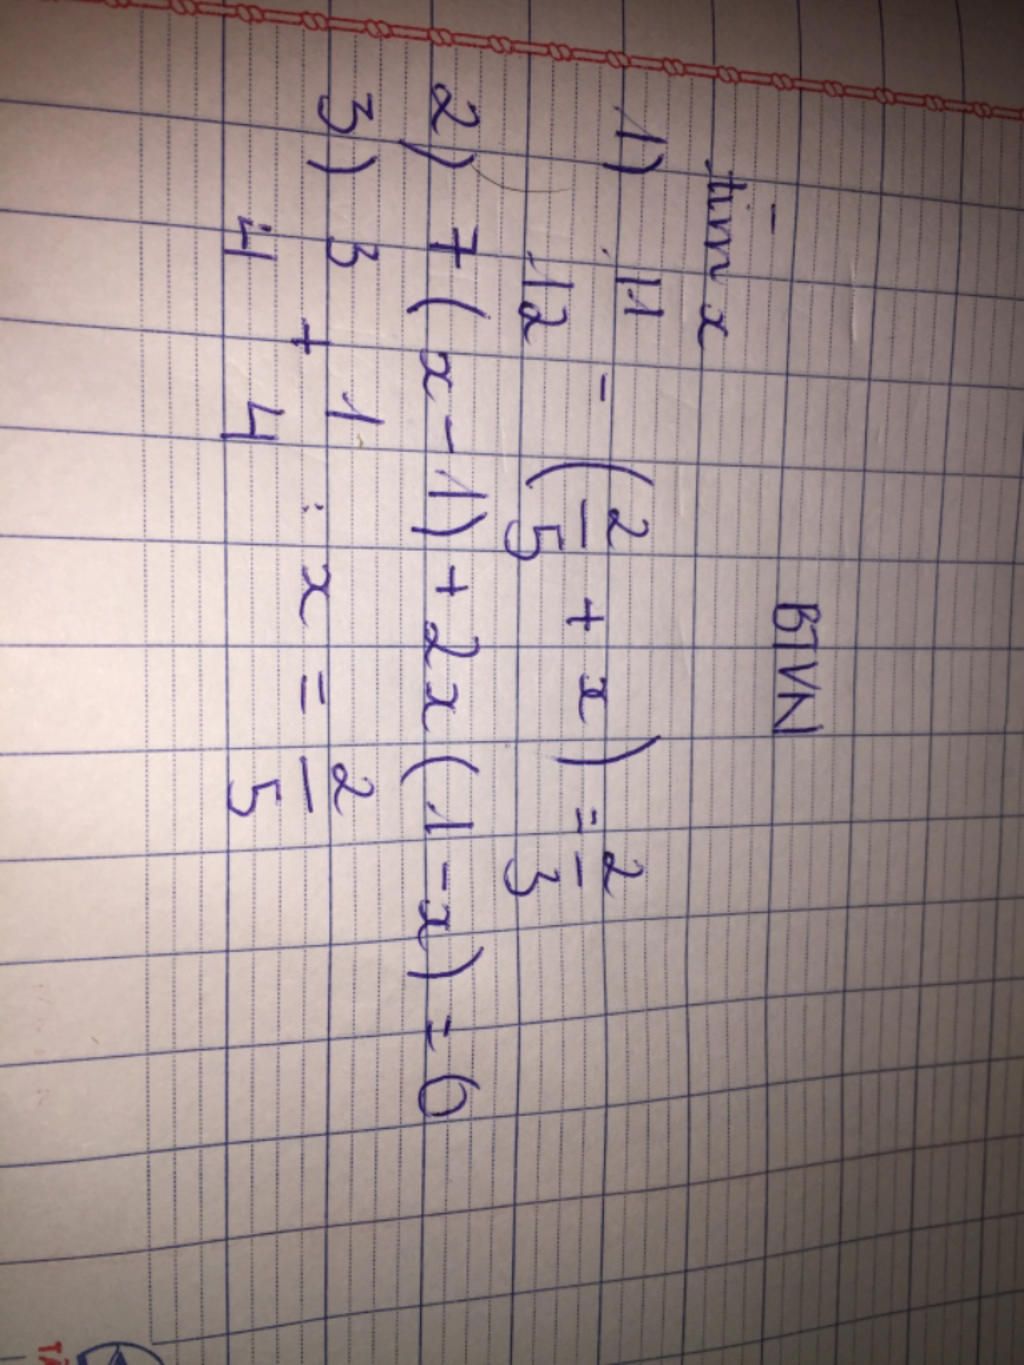 BTVN
Tìm x
1) 11/12 - (2/5 + x) = 2/3
2) 7(x-1) + 2x(1-x) = 0
3) 3/4 + 1/4 : x = 2/5